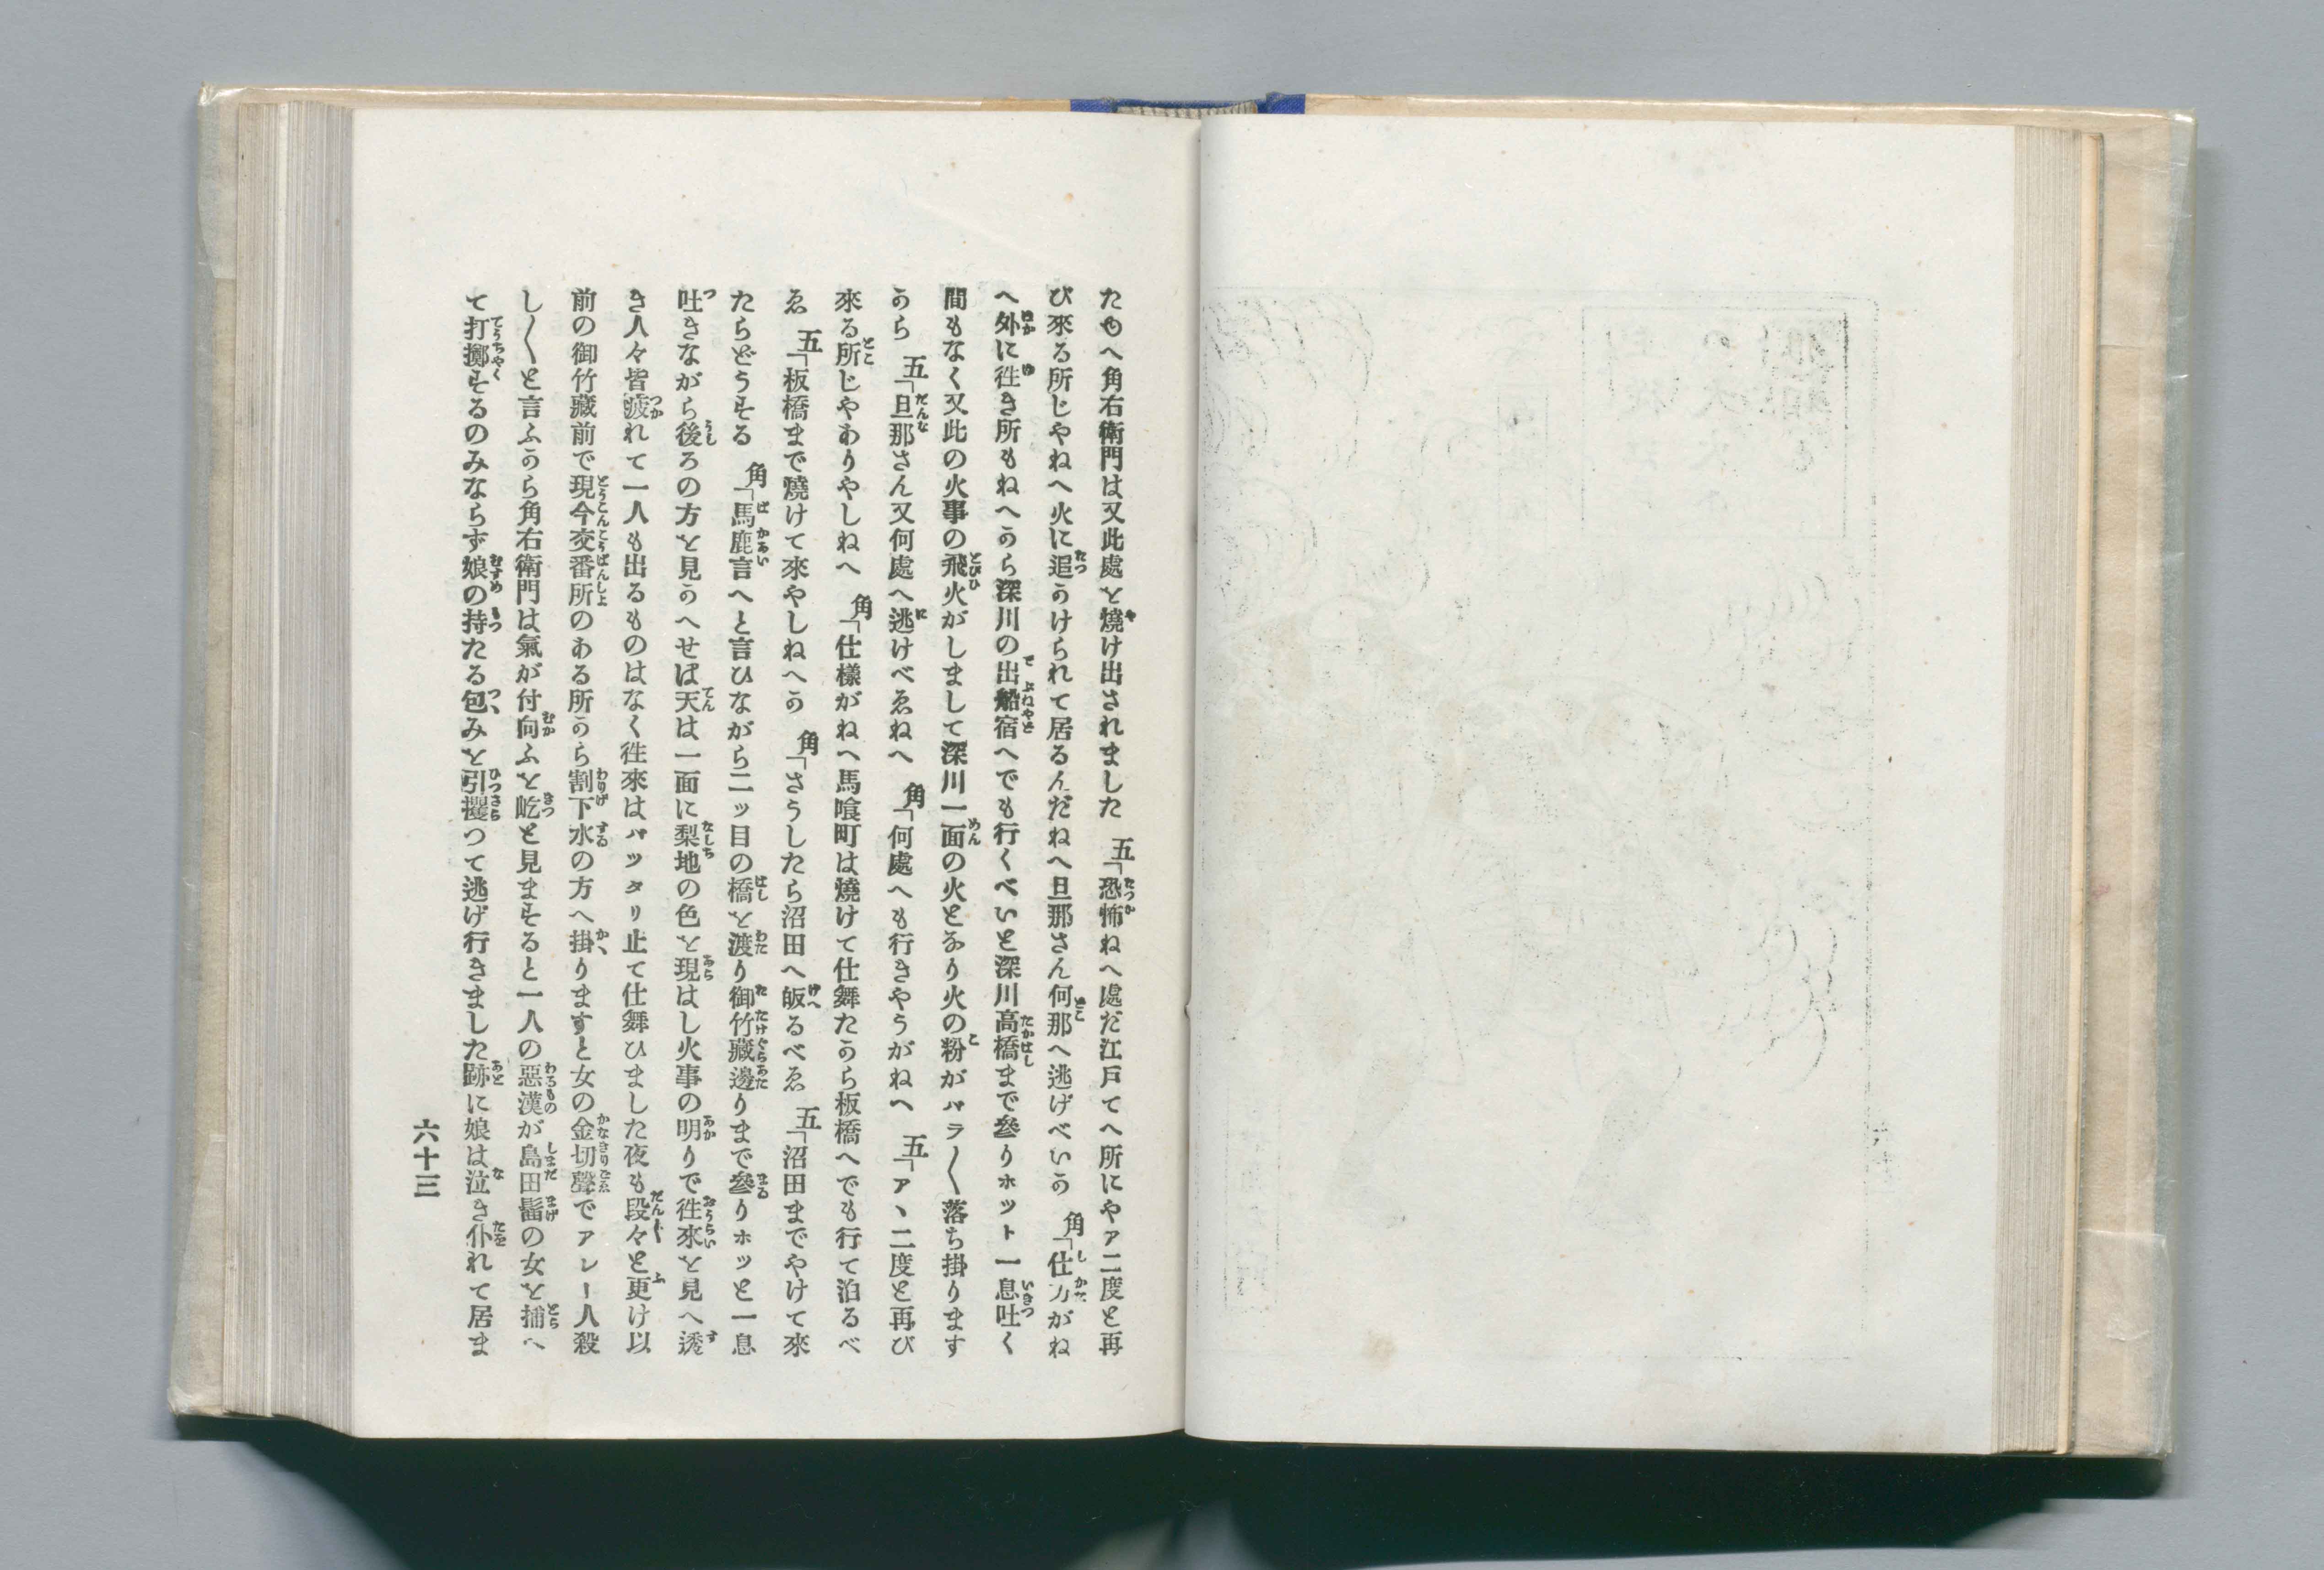 たゆへ角右衛門は又此處を燒け出されました　五「恐怖ねへ處だ江戸てへ所にやァ二度と再
び來る所じやねへ火に追かけられて居るんだねへ旦那さん何那へ逃げべいか　角「仕方がね
へ外に徃き所もねへから深川の出船宿へでも行くべいと深川高橋まで參りホット一息吐く
間もなく又此の火事の飛火がしまして深川一面の火となり火の粉がバラ〱落ち掛ります
から　五「旦那さん又何處へ逃けべゑねへ　角「何處へも行きやうがねへ　五「アヽ二度と再び
來る所じやありやしねへ　角「仕樣がねへ馬喰町は燒けて仕舞たから板橋へでも行て泊るべ
ゑ　五「板橋まで燒けて來やしねへか　角「さうしたら沼田へ皈るべゑ　五「沼田までやけて來
たらどうする　角「馬鹿言へと言ひながら二ッ目の橋を渡り御竹藏邊りまで參りホッと一息
吐きながら後ろの方を見かへせば天は一面に梨地の色を現はし火事の明りで徃來を見へ透
き人々皆疲れて一人も出るものはなく徃來はバッタリ止て仕舞ひました夜も段々と更け以
前の御竹藏前で現今交番所のある所から割下水の方へ掛りますと女の金切聲でアレー人殺
し〱と言ふから角右衛門は氣が付向ふを屹と見ますると一人の惡漢が島田髷の女を捕へ
て打擲するのみならず娘の持たる包みを引攫つて逃げ行きました跡に娘は泣き仆れて居ま
六十三